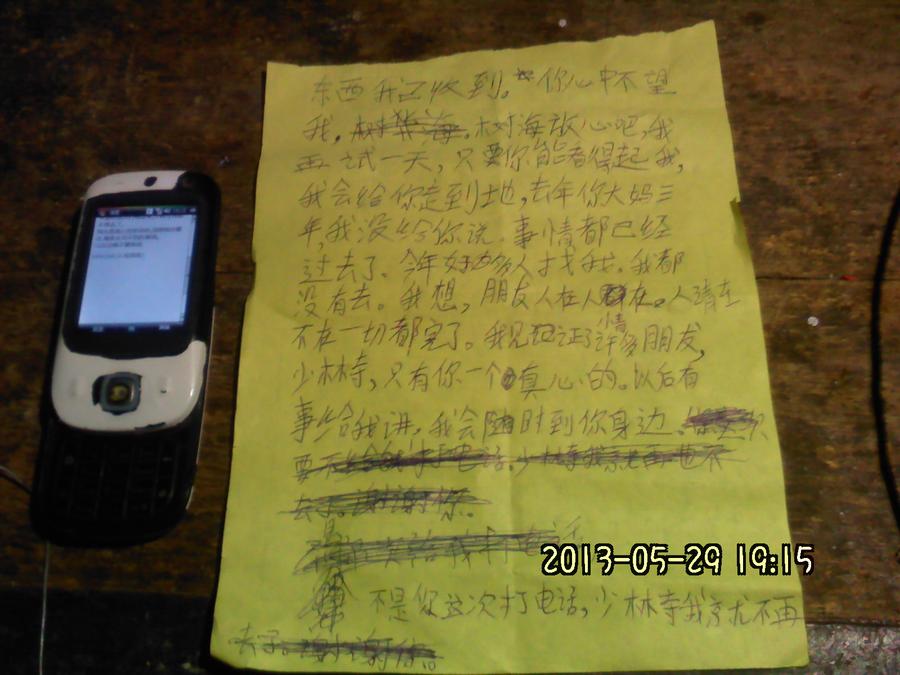 东西我已收到。你心中不望
我。树海放心吧,我
再试一天,只要你能看得起我,
我会给你走到地,去年你大妈三
年,我没给你说。事情都已经
过去了。今年好多人找我。我都
没有去。我想,朋友人在人情在。人清在
不在一切都完了。我见证了许多朋友,
少林寺,只有你一个真心的。以后有
事给我讲,我会随时到你身边。
要不给我打电话。少林寺我就再也不
去了。谢谢你。
给我打电话
不是您这次打电话,少林寺我就不再
去了。谢谢你。
2013-05-29 19:15